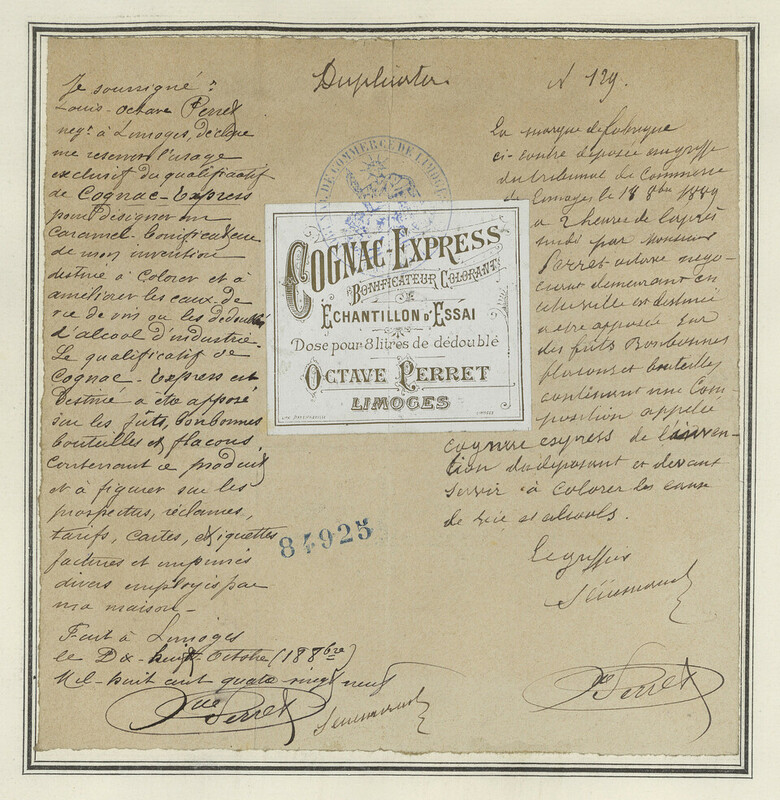 Duplicata
N 129.
Je soussigné
Louis-Octave Perret
negt à Limoges, déclare
me reserver l'usage
exclusif du qualificatif
de Cognac-Express
pour désigner un
Caramel bonificateur
de mon invention
destiné à Colorer et à
améliorer les eaux-de
vie de vins ou les dédoublés
d'alcool d'industrie.
Le qualificatif de
Cognac-Express est
Destiné à être apposé
sur les fûts, bonbonnes
bouteilles et flacons,
contenant ce produit
et à figurer sur les
prospectus, réclames,
tarifs, cartes, etiquettes
factures et imprimés
divers employés par
ma maison-
Fait à Limoges
le Dix-huit Octobre
Mil-huit cent quatre vingt neuf
Perret
TRIBUNAL DE COMMERCE DE LIMOGES
COGNAC-EXPRESS
BONIFICATEUR COLORANT
ECHANTILLON D'ESSAI
Dose pour 8 litres de dédoublé
OCTAVE PERRET
LIMOGES
84925
La marque de fabrique
ci-contre déposée au greffe
du tribunal de Commerce
de Limoges le 18 8bre 1889
à 2 heures de l'après
midi par Monsieur
Perret-octave négo-
ciant demeurant en
cette ville est destinée
a être apposée sur
des futs Bonbonnes
flacons et bouteilles
contenant une Com-
position appelée
cognac express de l'inven-
tion du déposant et devant
servir à colorer les eaux
de vie et alcools.
Le greffier
Perret